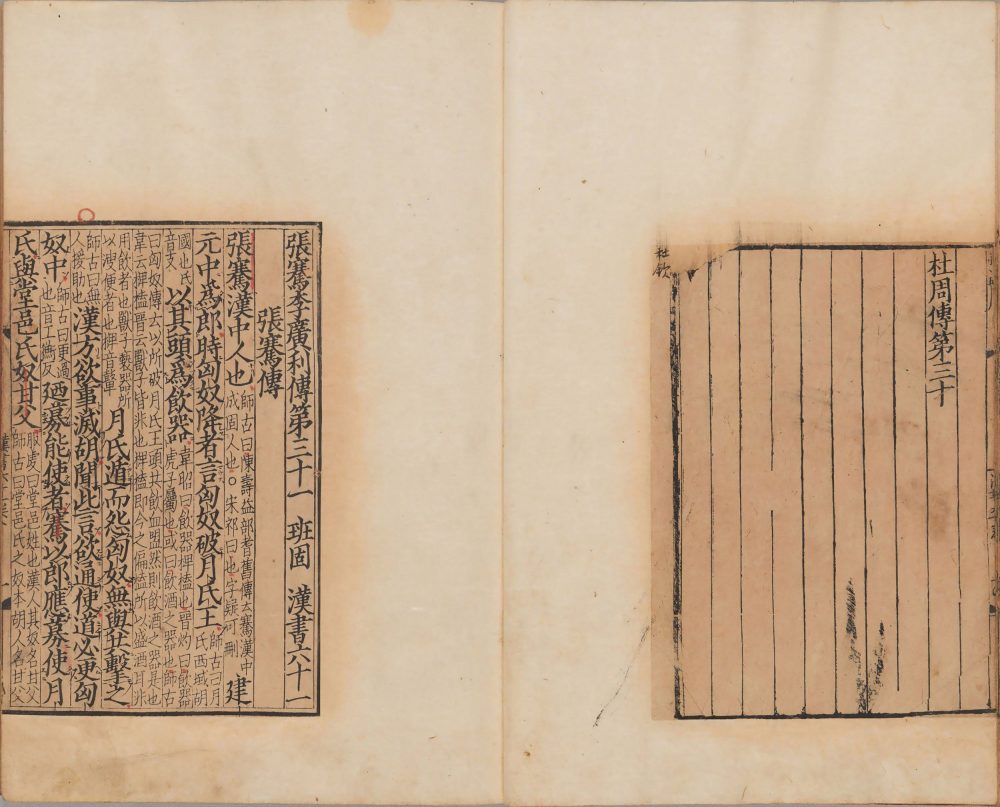 杜周傳第三十
杜欽
張騫李廣利傳第三十一 班固 漢書六十一
張騫傳
張騫漢中人也 師古曰陳壽益部耆舊傳云騫漢中成固人也○宋祁曰也字疑可刪 建
元中爲郎時匈奴降者言匈奴破月氏王 師古曰月氏西域胡
國也氏音支 以其頭爲飲器 韋昭曰飲器椑榼也晉灼曰飲器虎子屬也或曰飲酒之器也師古
曰匈奴傳云以所破月氏王頭共飲血盟然則飲酒之器是也韋云椑榼晉云獸子皆非也椑榼即今之偏榼所以盛酒耳非
用飲者也獸子褻器所以溲便者也椑音鼙 月氏遁而怨匈奴無與共擊之
師古曰無人援助也 漢方欲事滅胡聞此言欲通使道必更匈
奴中 師古曰更過也音工衡反 廼募能使者騫以郎應募使月
氏與堂邑氏奴甘父 服虔曰堂邑姓也漢人其奴名甘父師古曰堂邑氏之奴本胡人名甘父